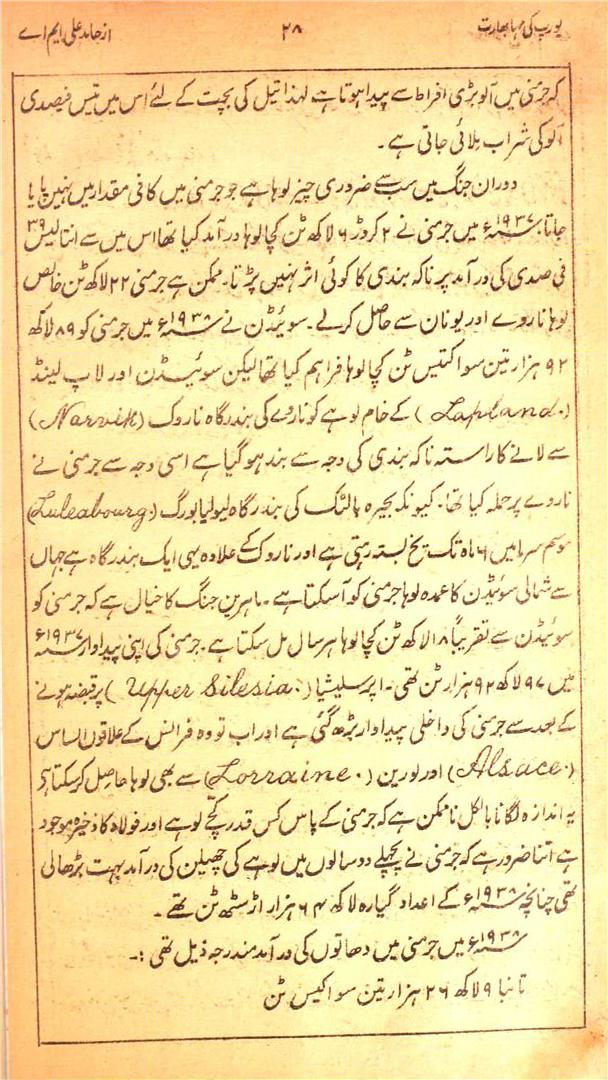 یورپ کی مہابھارت
۲۸
از حامد علی ایم اے
کہ جرمنی میں آلو بڑی افراط سے پیدا ہوتا ہے لہذا تیل کی بچت کے لئے اس میں تیس فیصدی
آلو کی شراب ملائی جاتی ہے۔
دوران جنگ میں سب سے ضروری چیز لوہا ہے جو جرمنی میں کافی مقدار میں نہیں پایا
جاتا، ۱۹۳۷ء میں جرمنی نے ۲ کروڑ ۶ لاکھ ٹن کچا لوہا درآمد کیا تھا اس میں سے انتالیس ۳۹
فی صدی کی درآمد پر ناکہ بندی کا کوئی اثر نہیں پڑتا۔ ممکن ہے جرمنی ۲۲ لاکھ ٹن خالص
لوہا ناروے اور یونان سے حاصل کرلے۔ سوئیڈن نے ۱۹۳۸ء میں جرمنی کو ۸۹ لاکھ
۹۲ ہزار تین سو اکتیس ٹن کچا لوہا فراہم کیا تھا لیکن سوئیڈن اور لاپ لینڈ
(Lapland.) کے خام لوہے کو ناروے کی بندرگاہ ناروک (Narvik)
سے لانے کا راستہ ناکہ بندی کی وجہ سے بند ہو گیا ہے اسی وجہ سے جرمنی نے
ناروے پر حملہ کیا تھا۔ کیونکہ بحیرہ بالٹک کی بندرگاہ لیولیا بورگ (Luleabourg.)
موسم سرما میں ۶ ماہ تک یخ بستہ رہتی ہے اور ناروک کے علاوہ یہی ایک بندرگاہ ہے جہاں
سے شمالی سوئیڈن کا عمدہ لوہا جرمنی کو آسکتا ہے۔ ماہرین جنگ کا خیال ہے کہ جرمنی کو
سوئیڈن سے تقریباً ۱۸ لاکھ ٹن کچا لوہا ہر سال مل سکتا ہے۔ جرمنی کی اپنی پیداوار ۱۹۳۷ء
میں ۹۷ لاکھ ۹۲ ہزار ٹن تھی۔ اپر سلیشیا (Upper Silesia.) پر قبضہ ہونے
کے بعد سے جرمنی کی داخلی پیداوار بڑھ گئی ہے اور اب تو وہ فرانس کے علاقوں الساس
(Alsace.) اور لورین (Lorraine.) سے بھی لوہا حاصل کرسکتا ہے
یہ اندازہ لگانا بالکل ناممکن ہے کہ جرمنی کے پاس کس قدر کچے لوہے اور فولاد کا ذخیرہ موجود
ہے اتنا ضرور ہے کہ جرمنی نے پچھلے دو سالوں میں لوہے کی چھیلن کی درآمد بہت بڑھالی
تھی چنانچہ ۱۹۳۸ء کے اعداد گیارہ لاکھ ۶۴ ہزار اڑسٹھ ٹن تھے۔
۱۹۳۸ء میں جرمنی میں دھاتوں کی درآمد مندرجہ ذیل تھی :۔
تانبا ۹ لاکھ ۲۶ ہزار تین سو اکیس ٹن